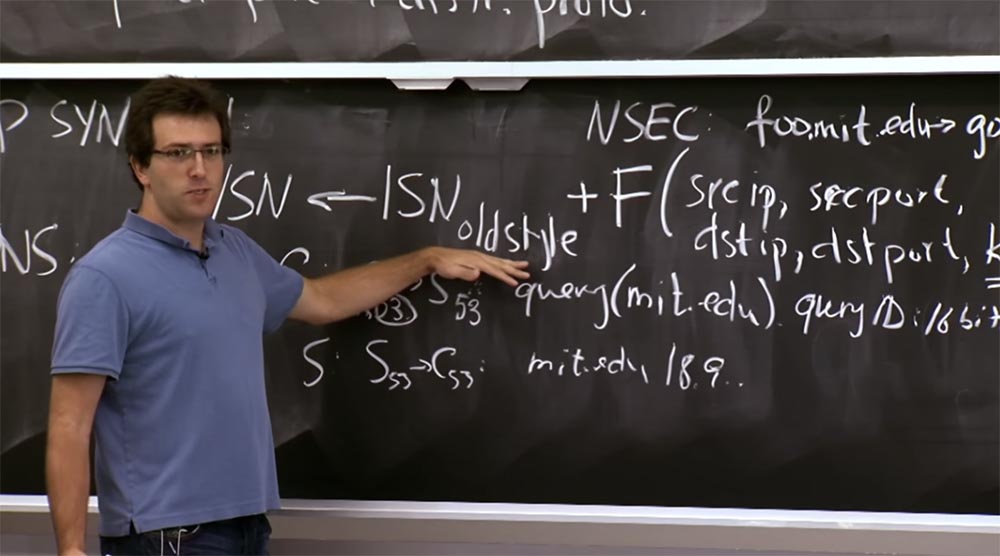 P SYN
NSEC: foo.mit.edu→ go
ISN ← ISN oldstyle + F( src ip, src port,
dst ip, dst port, k
NS: C: S53 query(mit.edu). query ID: 16 bit
S: S53→C53: mit.edu, 18.9..